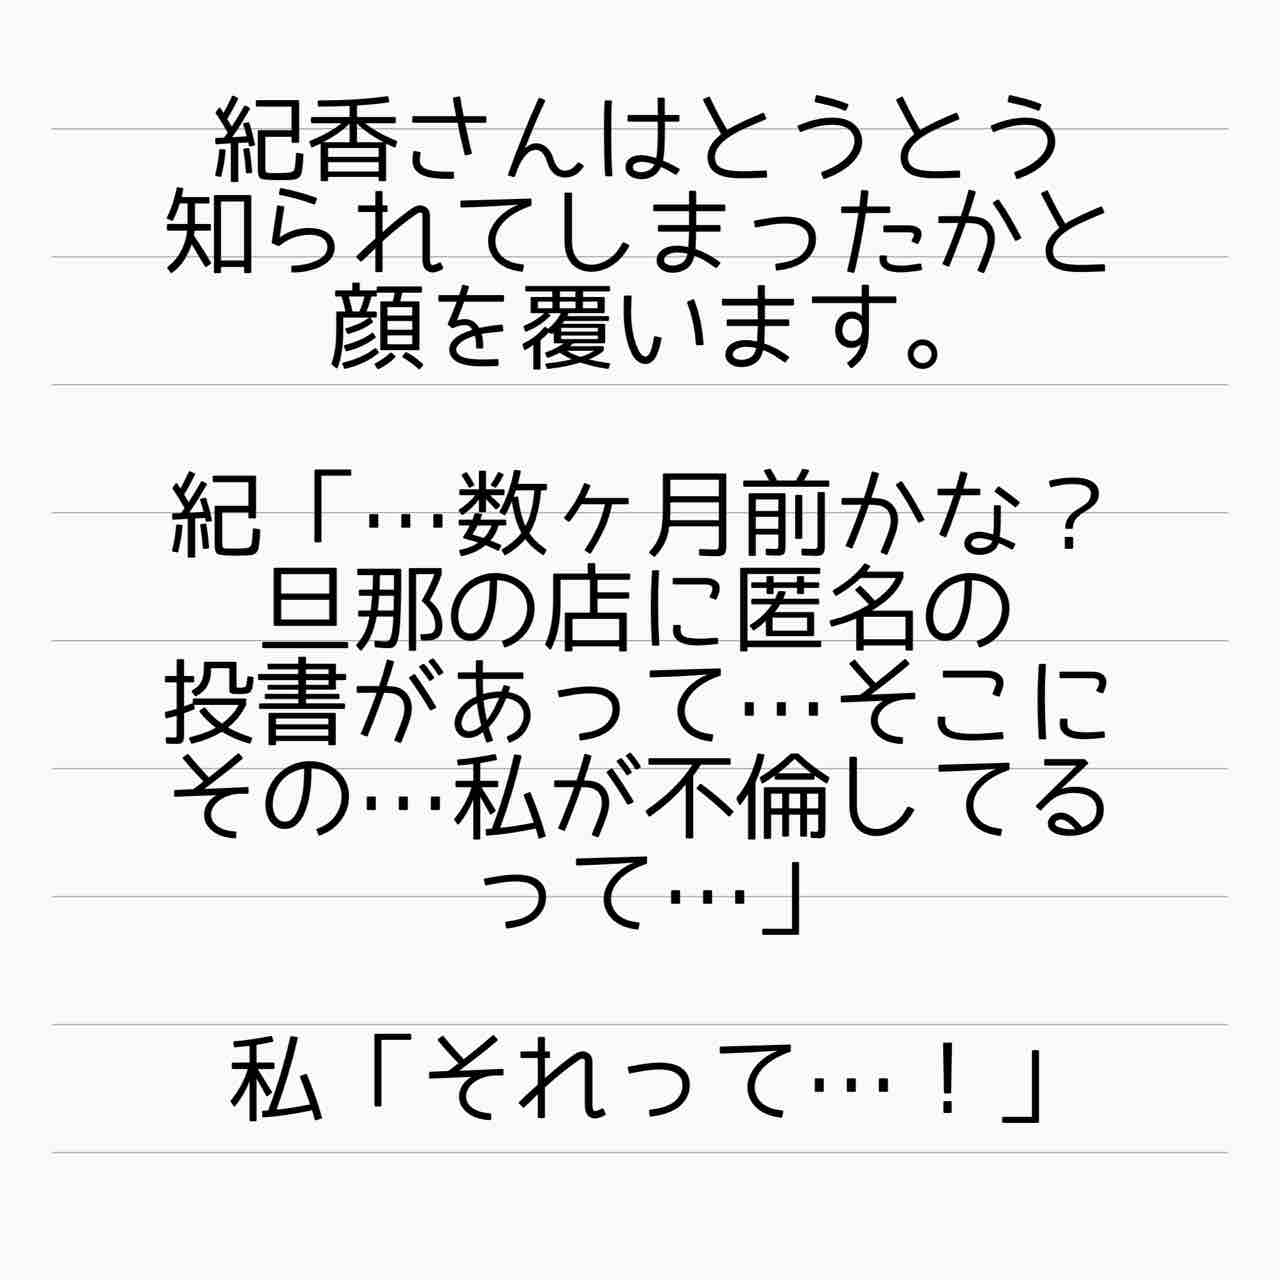 紀香さんはとうとう
知られてしまったかと
顔を覆います。
紀「…数ヶ月前かな？
旦那の店に匿名の
投書があって…そこに
その…私が不倫してる
って…」
私「それって…！」